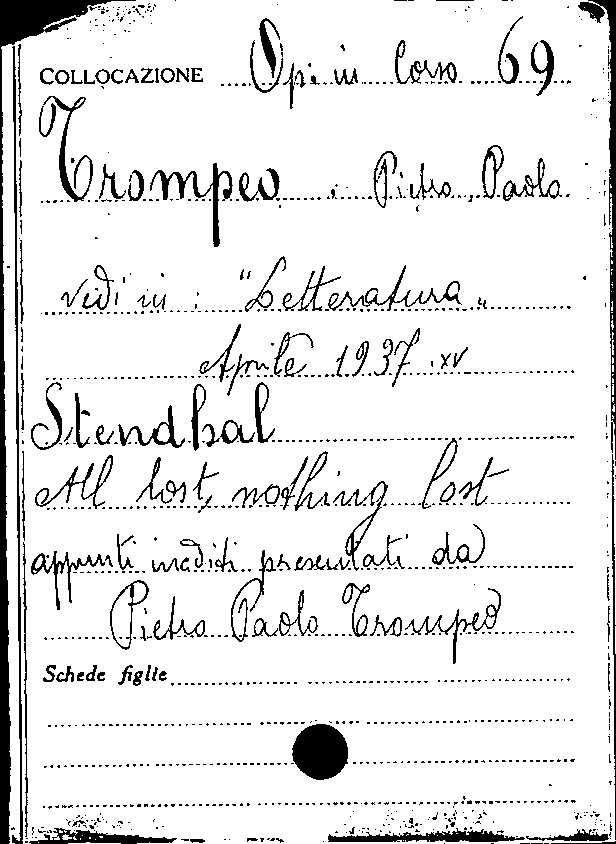 COLLOCAZIONE Op. in Corso 69
Trompeo . Pietro Paolo
vedi in : "Letteratura„
Aprile 1937 . XV
Stendhal
All lost, nothing lost
appunti inediti presentati da
Pietro Paolo Trompeo
Schede figlie